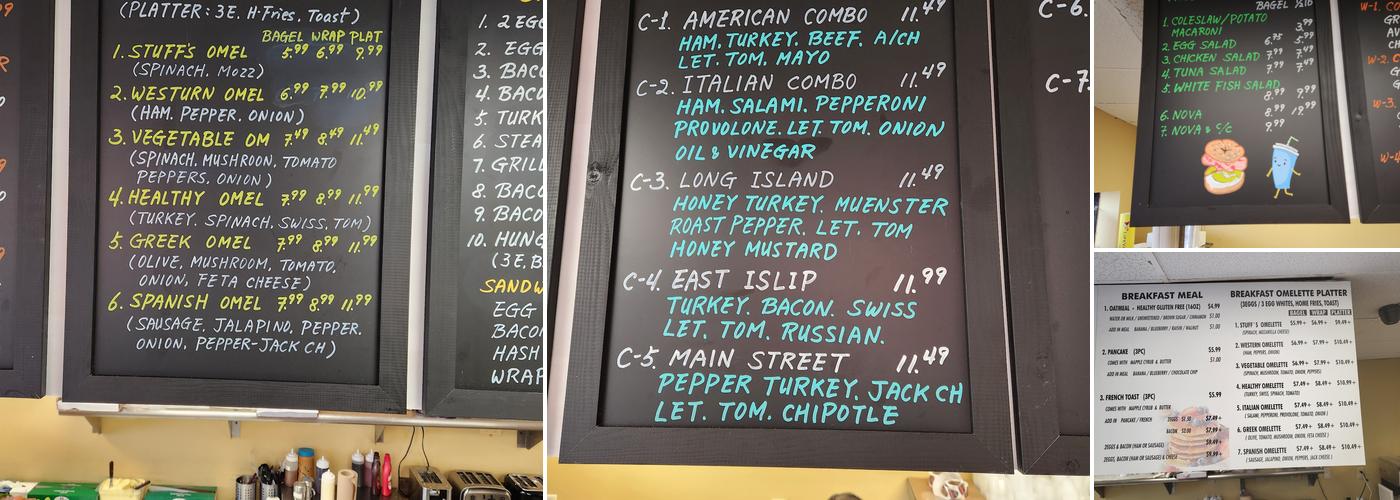 (PLATTER: 3E. H·Fries. Toast)
BAGEL WRAP PLAT
1. STUFF'S OMEL 5.99 6.99 9.99
(SPINACH. Mozz)
2. WESTURN OMEL 6.99 7.99 10.99
(HAM. PEPPER. ONION)
3. VEGETABLE OM 7.49 8.49 11.49
(SPINACH, MUSHROON, TOMATO
PEPPERS. ONION)
4. HEALTHY OMEL 7.99 8.99 11.99
(TURKEY. SPINACH. SWISS, TOM)
5. GREEK OMEL 7.99 8.99 11.99
(OLIVE, MUSHROOM, TOMATO.
ONION, FETA CHEESE)
6. SPANISH OMEL 7.99 8.99 11.99
(SAUSAGE. JALAPINO, PEPPER.
ONION, PEPPER-JACK CH)
1. 2 EGG
2. EGG
3. BACO
4. BACO
5. TURK
6. STEA
7. GRILL
8. BACO
9. BACO
10. HUNG
(3E,B
SANDW
EGG
BACON
HASH
WRAP
C-1. AMERICAN COMBO 11.49
HAM. TURKEY. BEEF. A/CH
LET. TOM. MAYO
C-2. ITALIAN COMBO 11.49
HAM. SALAMI. PEPPERONI
PROVOLONE. LET. TOM. ONION
OIL & VINEGAR
C-3. LONG ISLAND 11.49
HONEY TURKEY. MUENSTER
ROAST PEPPER. LET. TOM
HONEY MUSTARD
C-4. EAST ISLIP 11.99
TURKEY. BACON. SWISS
LET. TOM. RUSSIAN.
C-5. MAIN STREET 11.49
PEPPER TURKEY. JACK CH
LET. TOM. CHIPOTLE
C-6.
C-7.
BAGEL
1. COLESLAW/POTATO
MACARONI 3.99
2. EGG SALAD 6.75 5.99
3. CHICKEN SALAD 7.99 7.49
4. TUNA SALAD 7.99 7.49
5. WHITE FISH SALAD
8.99 9.99
6. NOVA 8.99 19.99
7. NOVA & C/C 9.99
W-1. CO
W-2. C
W-3.
W-4
BREAKFAST MEAL
1. OATMEAL - HEALTHY GLUTEN FREE (16OZ) $4.99
WATER OR MILK / UNSWEETENED / BROWN SUGAR / CINNAMON $1.00
ADD IN MEAL BANANA / BLUEBERRY / RAISIN / WALNUT $1.00
2. PANCAKE (3PC) $5.99
COMES WITH MAPPLE CYRUB & BUTTER $1.00
ADD IN MEAL BANANA / BLUEBERRY / CHOCOLATE CHIP
3. FRENCH TOAST (3PC) $5.99
COMES WITH MAPPLE CYRUB & BUTTER
ADD IN PANCAKE / FRENCH 2EGGS $1.50 $7.49+
BACON $2.00 $7.99+
2EGGS & BACON (HAM OR SAUSAGE) $9.49+
2EGGS, BACON (HAM OR SAUSAGE) & CHEESE $9.99+
BREAKFAST OMELETTE PLATTER
(3EGGS / 3 EGG WHITES, HOME FRIES, TOAST)
BAGEL WRAP PLATTER
1. STUFF'S OMELETTE $5.99+ $6.99+ $9.49+
(SPINACH, MOZZARELLA CHEESE)
2. WESTERN OMELETTE $6.99+ $7.99+ $10.49+
(HAM, PEPPERS, ONION)
3. VEGETABLE OMELETTE $6.99+ $7.99+ $10.49+
(SPINACH, MUSHROOM, TOMATO, ONION, PEPPERS)
4. HEALTHY OMELETTE $7.49+ $8.49+ $10.99+
(TURKEY, SWISS, SPINACH, TOMATO)
5. ITALIAN OMELETTE $7.49+ $8.49+ $10.49+
( SALAMI, PEPPERONI, PROVOLONE, TOMATO, ONION )
6. GREEK OMELETTE $7.49+ $8.49+ $10.49+
( OLIVE, TOMATO, MUSHROOM, ONION, FETA CHEESE)
7. SPANISH OMELETTE $7.49+ $8.49+ $10.49+
( SAUSAGE, JALAPINO, ONION, PEPPERS, JACK CHEESE )